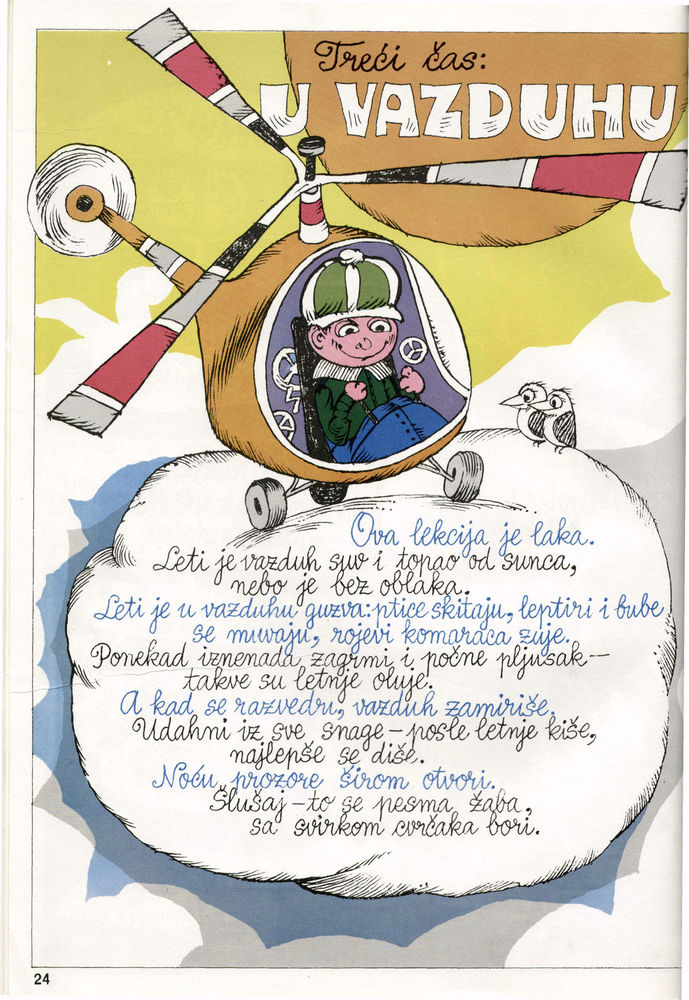 Treći čas:
U VAZDUHU
Ova lekcija je laka.
Leti je vazduh suv i topao od sunca,
nebo je bez oblaka.
Leti je u vazduhu guzva: ptice skitaju, leptiri i bube
se muvaju, rojevi komaraca zuje.
Ponekad iznenada zagrmi i počne pljusak-
takve su letnje oluje.
A kad se razvedri, vazduh zamiriše.
Udahni iz sve snage - posle letnje kiše,
najlepše se diše.
Noću prozore širom otvori.
Slušaj - to se pesma žaba,
sa svirkom cvrčaka bori.
24